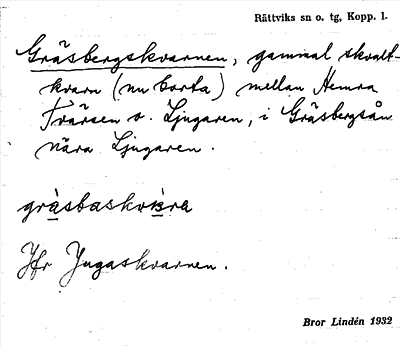 Rättviks sn o. tg, Kopp. l.
Gräsbergskvarnen, gammal skvalt-
kvarn (nu borta) mellan Hemra
Tvärsen o. Ljugaren, i Gräsbergsån
nära Ljugaren.
Jfr Jugaskvarnen.
Bror Lindén 1932